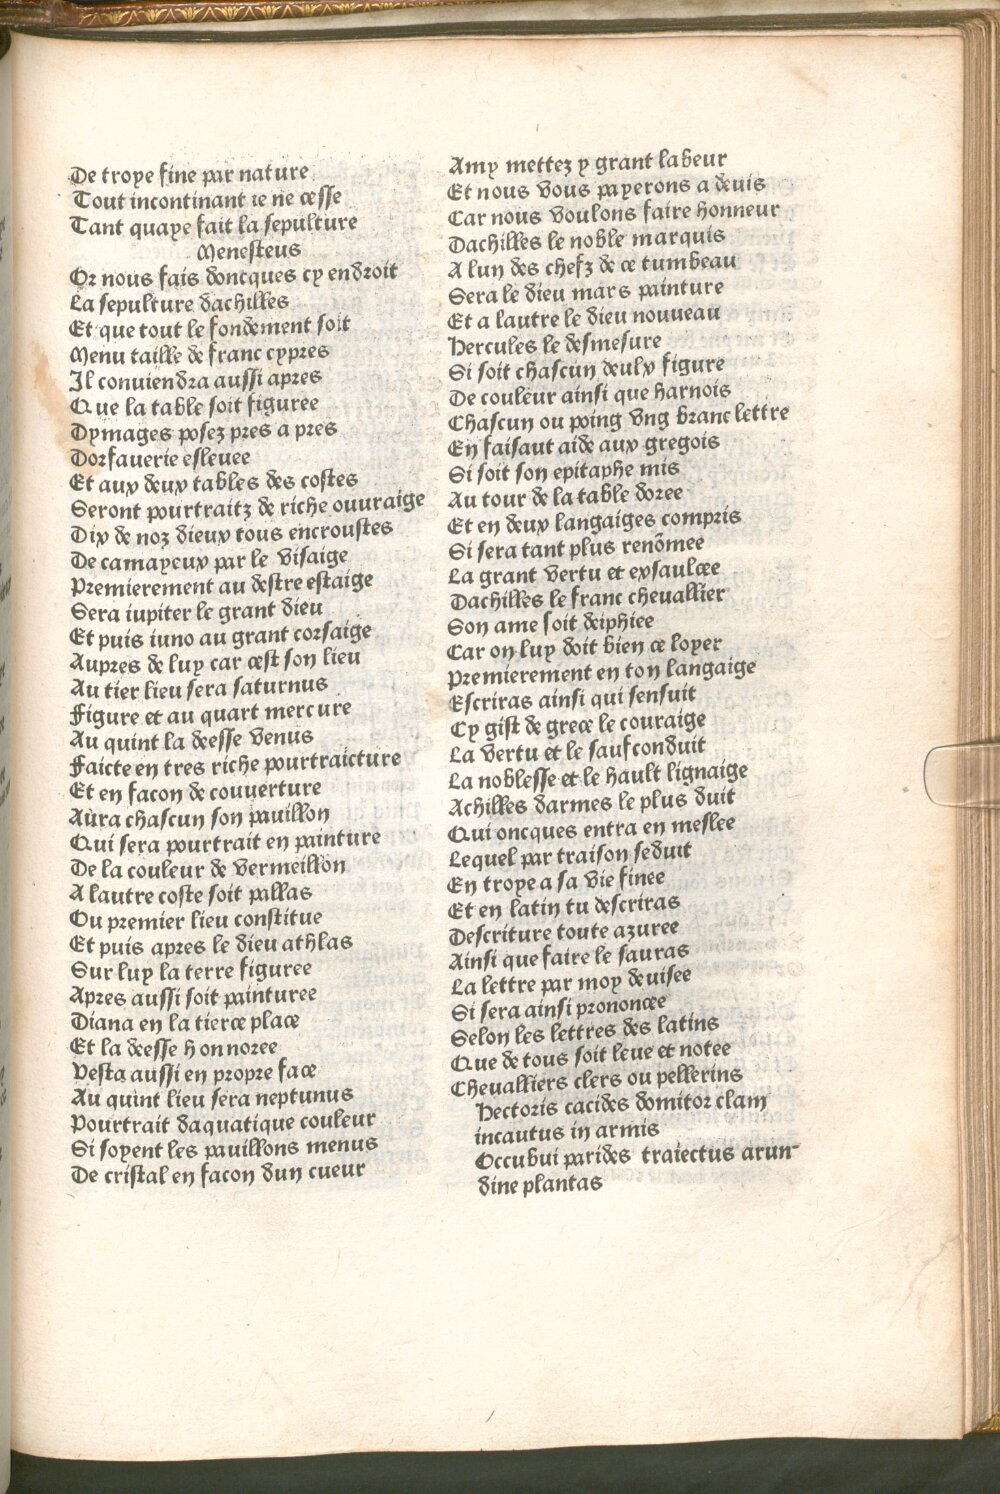 De troye fine par nature
Tout incontinant ie ne cesse
Tant quaye fait la sepulture
Menesteus
Or nous fais doncques cy endroit
La sepulture dachilles
Et que tout le fondement soit
Menu taille de franc cypres
Il conuiendra aussi apres
Que la table soit figuree
Dymages posez pres a pres
Dorfauerie esleuee
Et aux deux tables des costes
Seront pourtraitz de riche ouuraige
Dix de noz dieux tous encroustes
De camayeux par le visaige
Premierement au destre estaige
Sera iupiter le grant dieu
Et puis iuno au grant corsaige
Aupres de luy car cest son lieu
Au tier lieu sera saturnus
Figure et au quart mercure
Au quint la deesse venus
Faicte en tres riche pourtraicture
Et en facon de couuerture
Aura chascun son pauillon
Qui sera pourtrait en painture
De la couleur de vermeillon
A lautre coste soit pallas
Ou premier lieu constitue
Et puis apres le dieu athlas
Sur luy la terre figuree
Apres aussi soit painturee
Diana en la tierce place
Et la deesse honnoree
Vesta aussi en propre face
Au quint lieu sera neptunus
Pourtrait daquatique couleur
Si soyent les pauillons menus
De cristal en facon dun cueur
Amy mettez y grant labeur
Et nous vous payerons a deuis
Car nous voulons faire honneur
Dachilles le noble marquis
A lun des chefz de ce tumbeau
Sera le dieu mars painture
Et a lautre le dieu nouueau
Hercules le desmesure
Si soit chascun deulx figure
De couleur ainsi que harnois
Chascun ou poing vng branc lettre
En faisaut aide aux gregois
Si soit son epitaphe mis
Au tour de la table doree
Et en deux langaiges compris
Si sera tant plus renōmee
La grant vertu et exsaulcee
Dachilles le franc cheuallier
Son ame soit deiphiee
Car on luy doit bien ce loyer
Premierement en ton langaige
Escriras ainsi qui sensuit
Cy gist de grece le couraige
La vertu et le saufconduit
La noblesse et le hault lignaige
Achilles darmes le plus duit
Qui oncques entra en meslee
Lequel par traison seduit
En troye a sa vie finee
Et en latin tu descriras
Descriture toute azuree
Ainsi que faire le sauras
La lettre par moy deuisee
Si sera ainsi prononcee
Selon les lettres des latins
Que de tous soit leue et notee
Cheualliers clers ou pellerins
Hectoris eacides domitor clam
incautus in armis
Occubui parides traiectus arun-
dine plantas